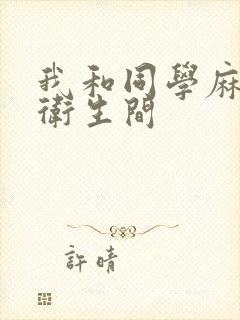 我和同學麻
衛生間
許晴